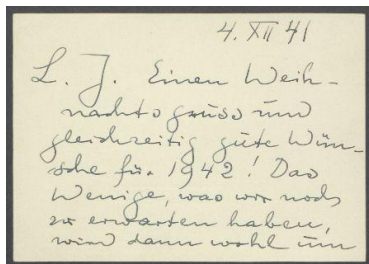 4. XII 41
L. J. Einen Weih-
nachtsgruss und
gleichzeitig gute Wün-
sche für 1942! Das
Wenige, was wir noch
zu erwarten haben,
wird dann wohl um